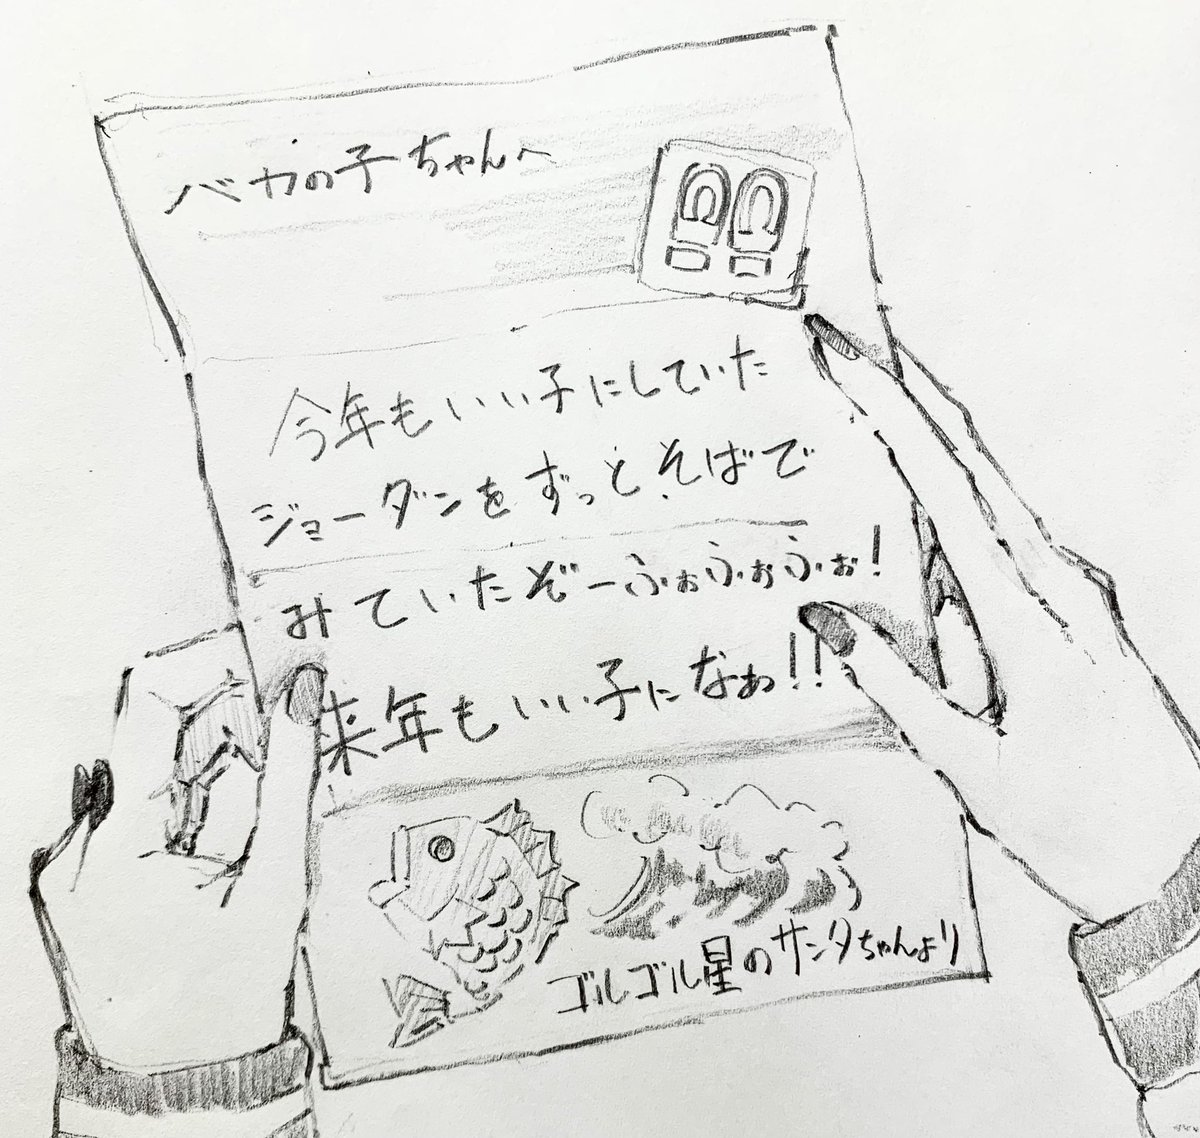 バカの子ちゃんへ
今年もいい子にしていた
ジョーダンをずっとそばで
みていたぞーふぉふぉふぉ!
来年もいい子になぁ!!
ゴルゴル星のサンタちゃんより